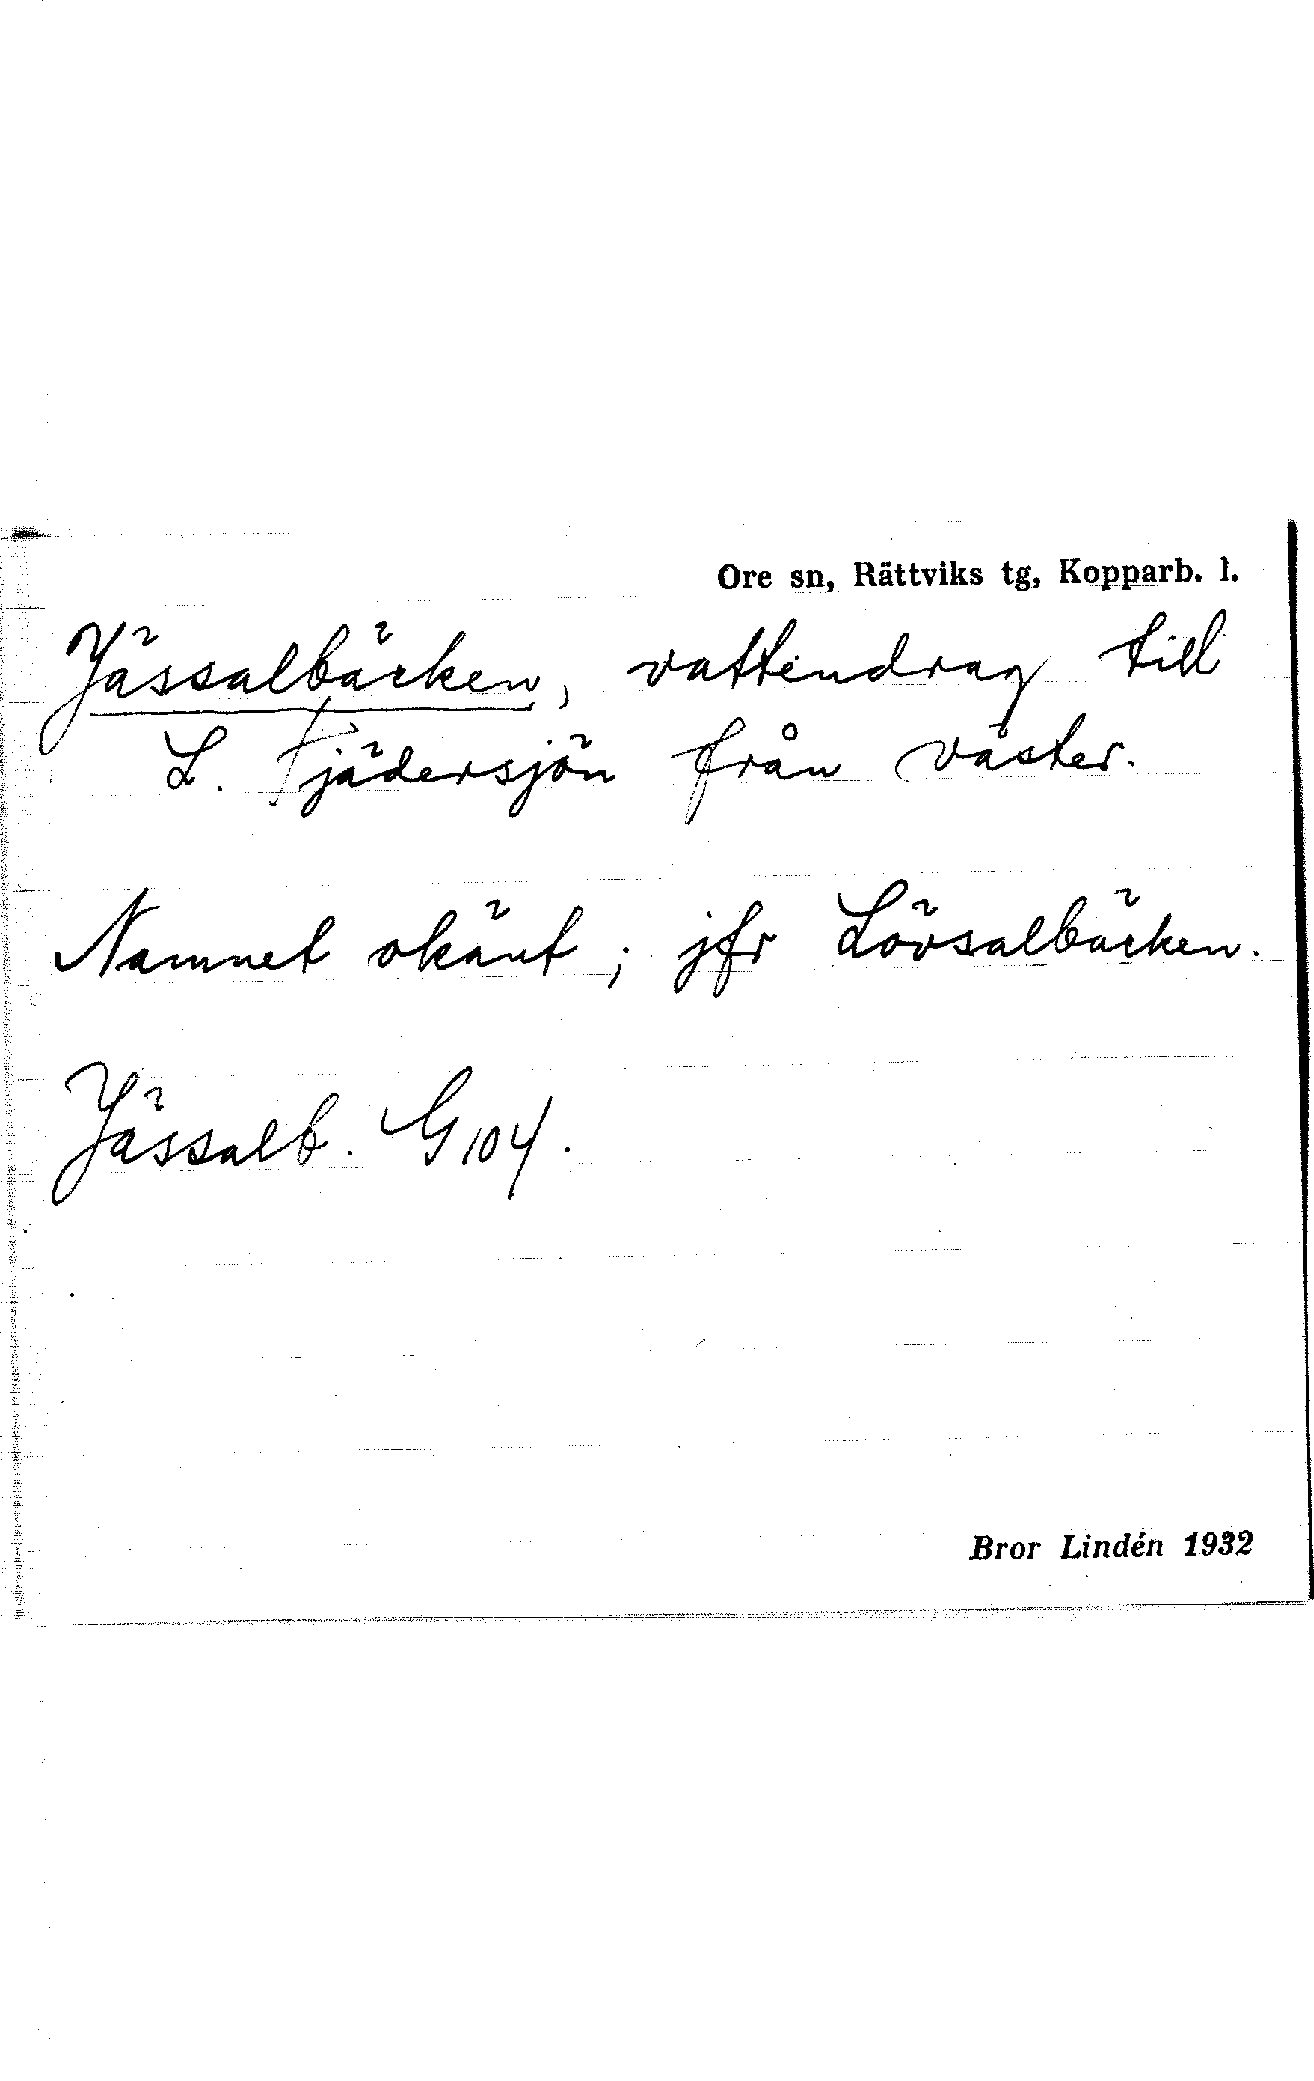 Ore sn, Rättviks tg, Kopparb. l.
Jässalbäcken, vattendrag till
L. Fjädersjön från väster.
Namnet okänt; jfr Lövsalbäcken.
Jässalb. G 104.
Bror Lindén 1932